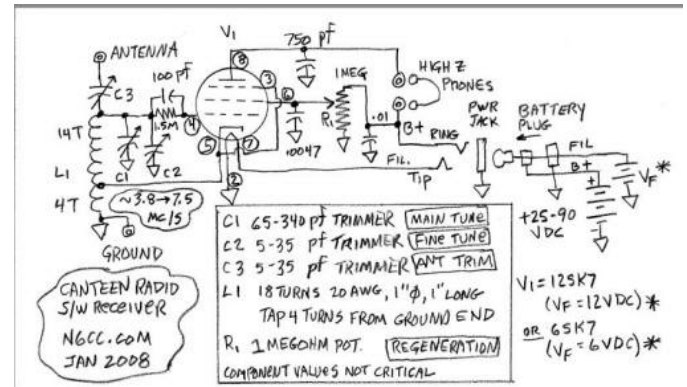 ANTENNA
V1
750 pf
100pf
C3
1.5M
8
3
6
4
5
7
2
1MEG
R1
.01
.0047
HIGH Z
PHONES
B+
RING
PWR
JACK
BATTERY
PLUG
FIL
B+
VF*
FIL.
TIP
+25-90
VDC
14T
L1
4T
C1
C2
~3.8→7.5
MC/S
GROUND
CANTEEN RADIO
S/W RECEIVER
N6CC.COM
JAN 2008
C1 65-340 pf TRIMMER MAIN TUNE
C2 5-35 pf TRIMMER FINE TUNE
C3 5-35 pf TRIMMER ANT TRIM
L1 18 TURNS 20 AWG, 1"Φ, 1" LONG
TAP 4 TURNS FROM GROUND END
R1 1 MEGOHM POT. REGENERATION
COMPONENT VALUES NOT CRITICAL
V1 = 12SK7
(VF = 12VDC)*
OR 6SK7
(VF = 6VDC)*